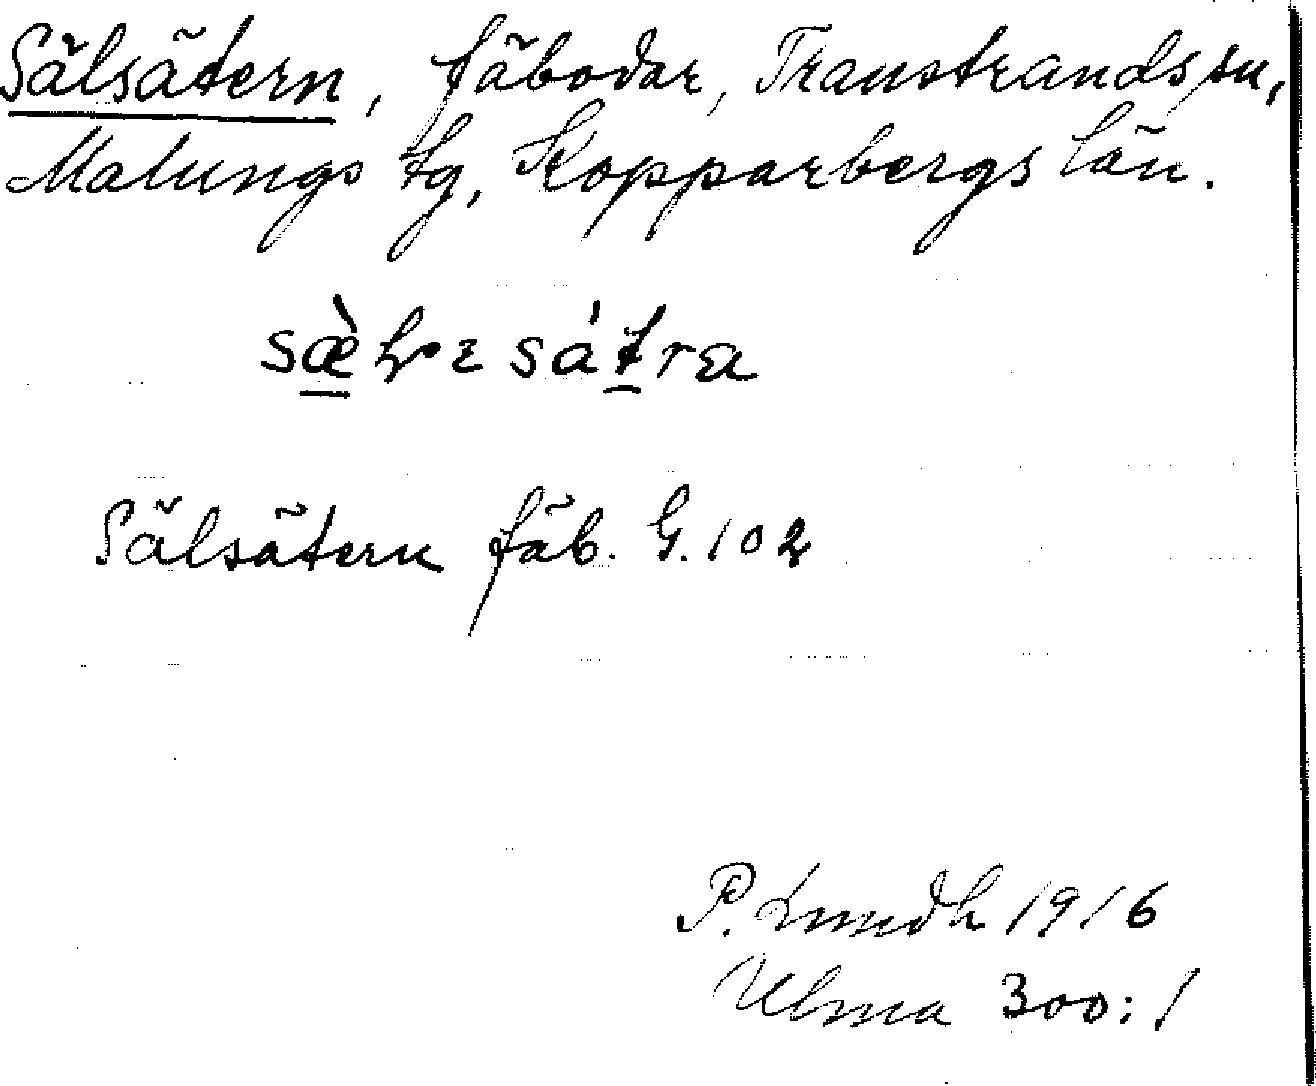 Sälsätern, fäbodar, Transtrands sn,
Malungs tg, Kopparbergs län.
Sälsätern fäb. G. 102
P. Lundh 1916
Ulma 300:1